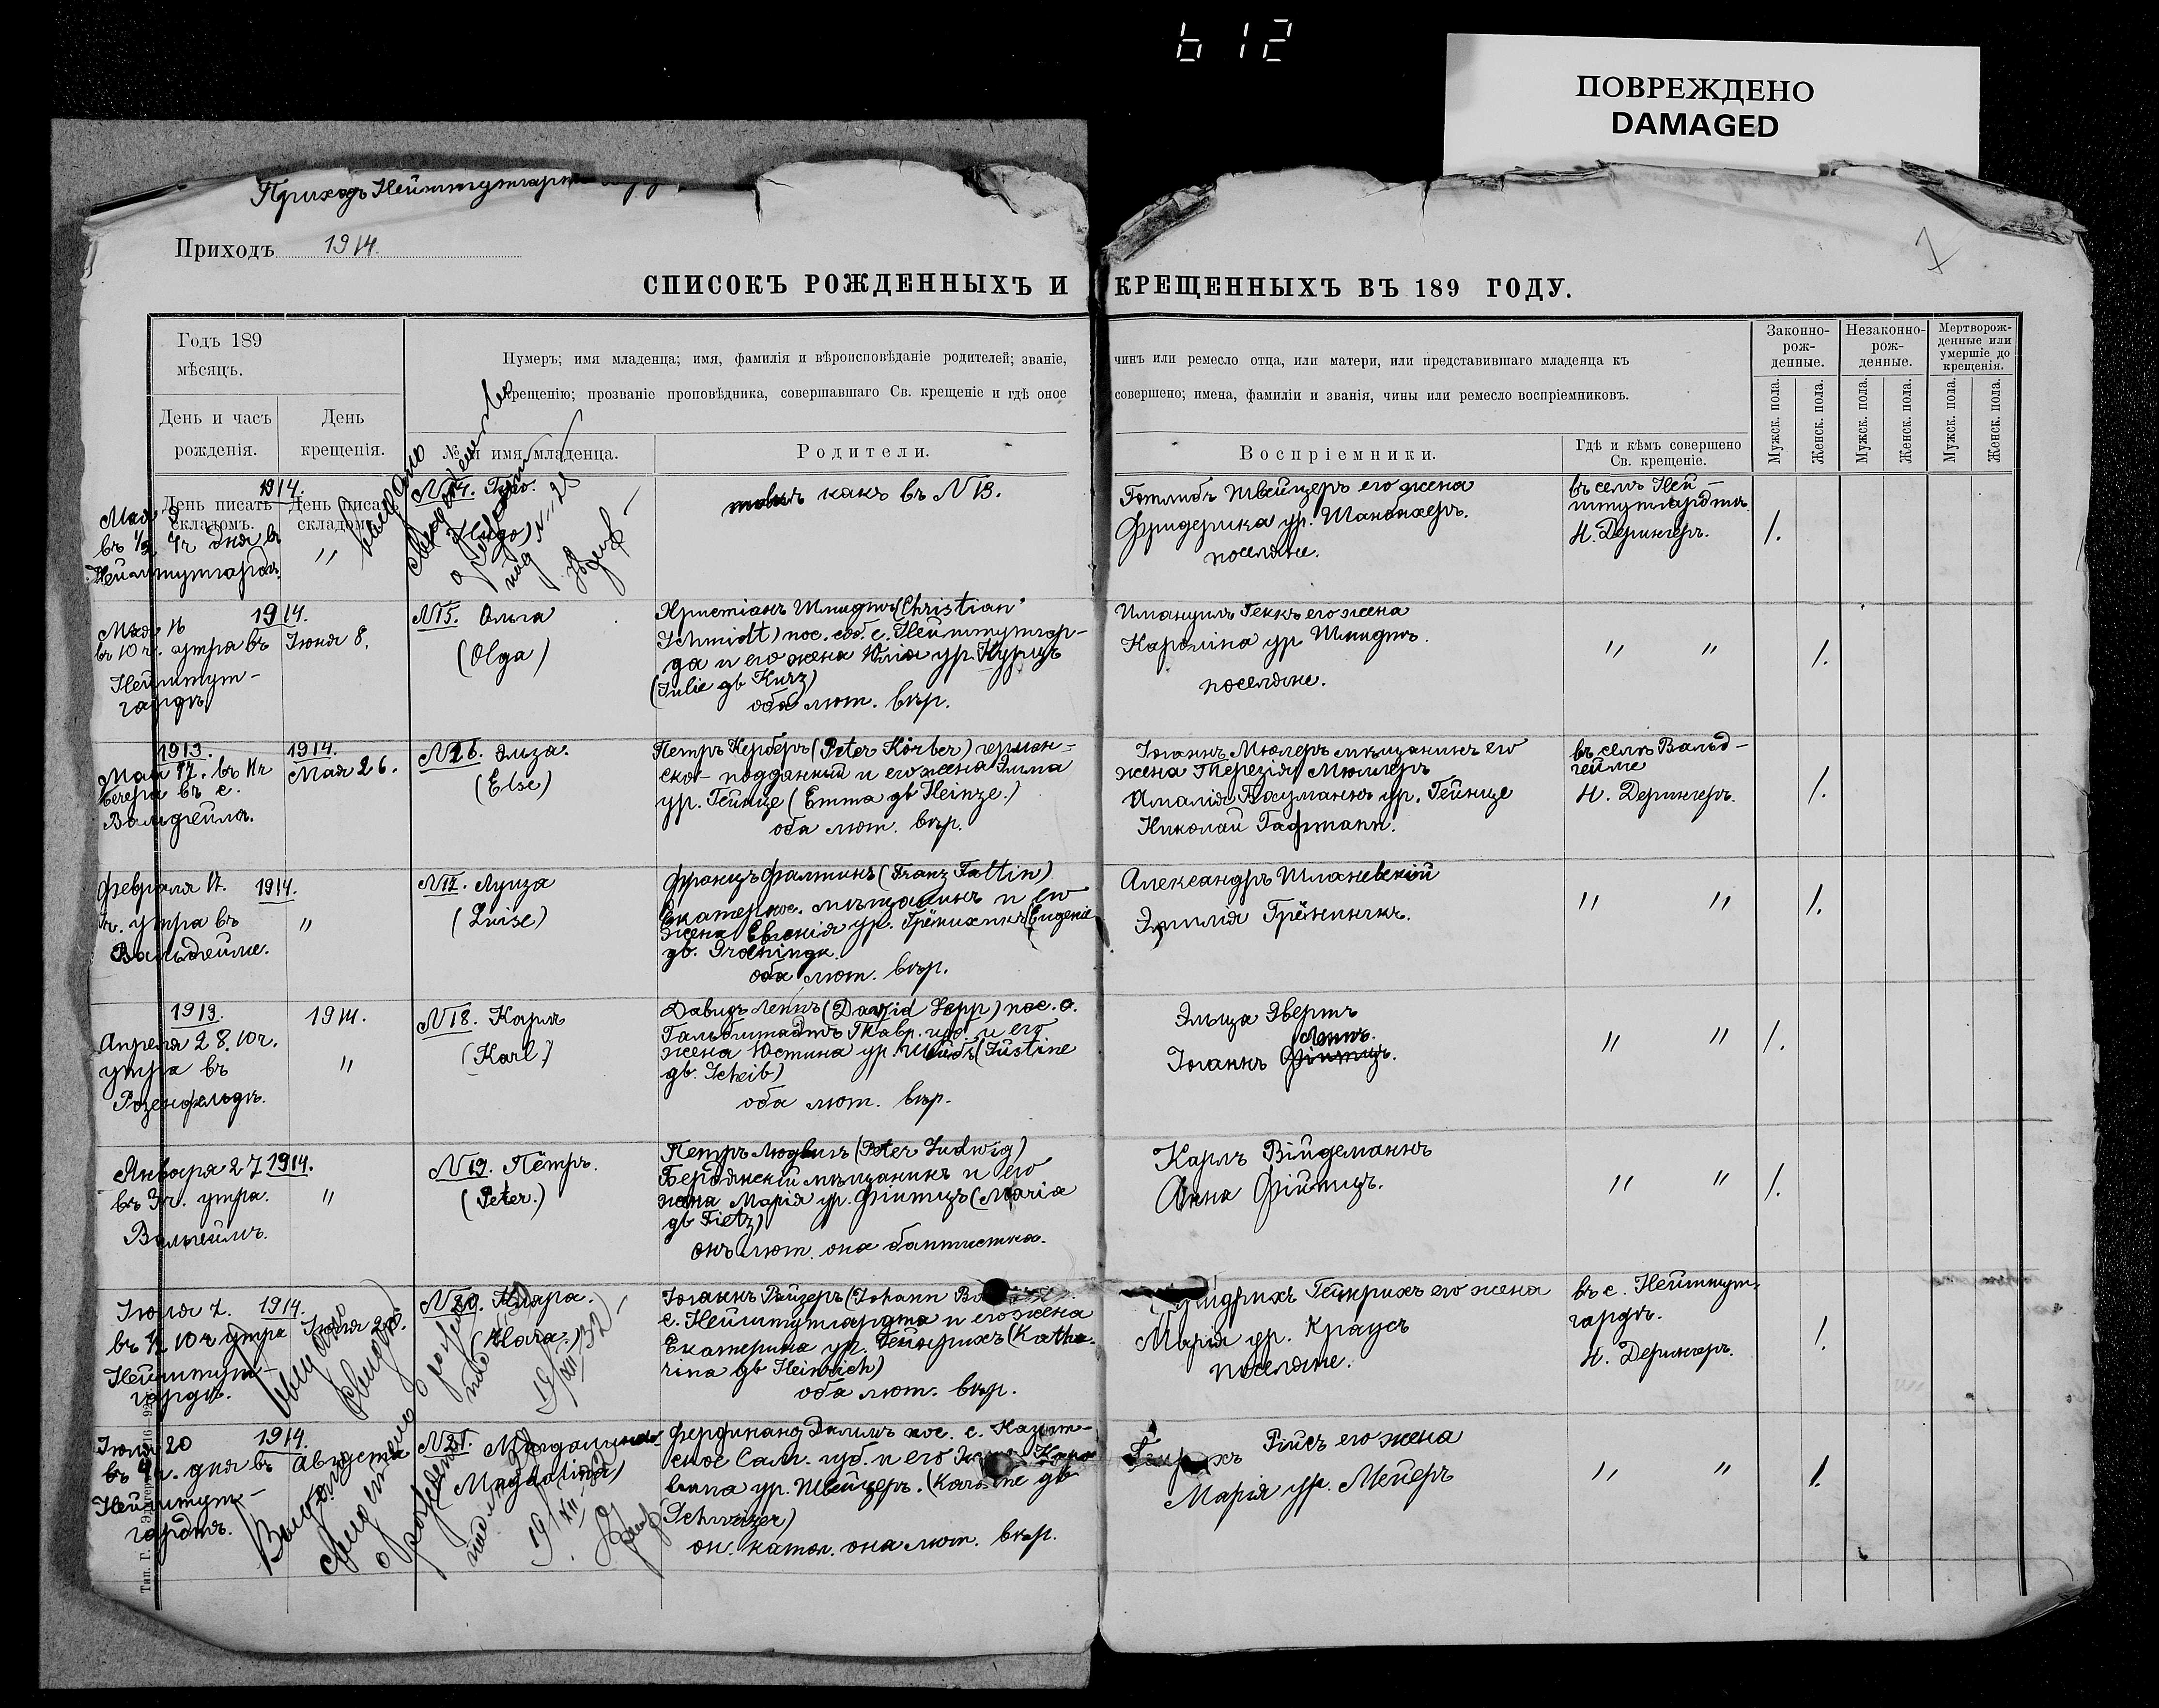 612
ПОВРЕЖДЕНО
DAMAGED
Приходъ Нейштутгартъ
Приходъ 1914.
7
СПИСОКЪ РОЖДЕННЫХЪ И КРЕЩЕННЫХЪ ВЪ 189 ГОДУ.
Годъ 189
мѣсяцъ.
День и часъ
рожденія.
День
крещенія.
Нумеръ; имя младенца; имя, фамилія и вѣроисповѣданіе родителей; званіе, чинъ или ремесло отца, или матери, или представившаго младенца къ
крещенію; прозваніе проповѣдника, совершавшаго Св. крещеніе и гдѣ оное совершено; имена, фамиліи и званія, чины или ремесло воспріемниковъ.
№ и имя младенца.
Родители.
Воспріемники.
Гдѣ и кѣмъ совершено
Св. крещеніе.
Законно-
рож-
денные.
Незаконно-
рож-
денные.
Мертворож-
денные или
умершіе до
крещенія.
Мужск. пола.
Женск. пола.
Мужск. пола.
Женск. пола.
Мужск. пола.
Женск. пола.
День писать
складомъ.
День писать
складомъ.
1914.
Мая 9
въ 1/2 4 ч дня въ
Нейштутгардтъ.
"
N14. Гуго.
(Hugo)
Выдано
свидетельство
о рождении
под N 28
какъ въ N 13.
Готлибъ Швейцеръ его жена
Фридерика ур.
поселяне.
въ селѣ Ней-
штутгардтѣ.
Н. Дерингеръ.
1.
1914.
Мая 16
въ 10 ч. утра въ
Нейштут-
гардтъ
Іюня 8.
N15. Ольга
(Olga)
Христіанъ Шмидтъ (Christian
Schmidt) пос. соб. с. Нейштутгар-
да и его жена Юлія ур. Курцъ
(Julie gb Kurz)
оба лют. вѣр.
Имануилъ Геккъ его жена
Каролина ур Шмидтъ.
поселяне.
" "
1.
1913.
Май 17. въ 11 ч
вечера въ с.
Вальдгеймъ.
1914.
Мая 26.
N16. Эльза.
(Else)
Петръ Керберъ (Peter Körber) герман-
ско- подданный и его жена Эмма
ур. Гейнце (Emma gb Heinze.)
оба лют. вѣр.
Іоганнъ Мюллеръ мѣщанинъ его
жена Терезія Мюллеръ
Амалія Бауманнъ ур. Гейнце
Николай Гафтманн.
въ селѣ Вальд-
гейме
Н. Дерингеръ.
1.
Февраля 17. 1914.
ч. утра въ
Вальдгейме.
"
N17. Луиза
(Luise)
Францъ Фалтинъ (Franz Faltin)
Екатеринос. мѣщанинъ и его
жена Евгенія ур. (Eugenie
gb.
оба лют. вѣр.
Александръ Шланевскій
Эмилія Грёнингъ.
" "
1.
1913.
Апреля 28. 10 ч.
утра въ
Розенфельдъ.
1914.
"
N18. Карлъ
(Karl)
Давидъ Леппъ (David Lepp) пос. с.
Гальбштадтъ Тавр. губ. и его
жена Юстина ур. Шейбъ (Justine
gb. Scheib)
оба лют. вѣр.
Эльза Эвертъ
Леппъ.
Іоганнъ Фитцъ.
" "
1.
Января 27 1914.
въ 3 ч. утра.
Вальгеймъ.
"
N19. Пётръ.
(Peter.)
Петръ Людвигъ (Peter Ludwig)
Бердянскій мѣщанинъ и его
жена Марія ур. Фитцъ (Maria
gb Fietz)
онъ лют. она баптистка.
Карлъ Війдеманнъ
Анна Фійтцъ.
" "
1.
Іюля 7. 1914.
въ 1/2 10 ч утра
Нейштут-
гардтъ.
N20. Клара.
(Klara.)
Выдано
19/XII 32
Іоганнъ (Johann
с. Нейштутгардта и его жена
Екатерина ур. Гейнрихъ (Katha-
rina gb Heinrich)
оба лют. вѣр.
Гейнрихъ его жена
Марія ур. Краусъ
поселяне.
въ с. Нейштут-
гардтъ.
Н. Дерингеръ.
1.
1914.
Іюля 20
въ 4 ч. дня въ
Нейштут-
гардтъ.
Августа
N21. Магдалина
(Magdalina)
Выдано
свидетел
о рождении
19/XII-32
Фердинанд пос. с. Казит-
ское Сам. губ. и его
ур. Швейцеръ. (Karoline gb
Schweizer)
он. катол. она лют. вѣр.
Рійсъ его жена
Марія ур. Мейеръ
" "
1.